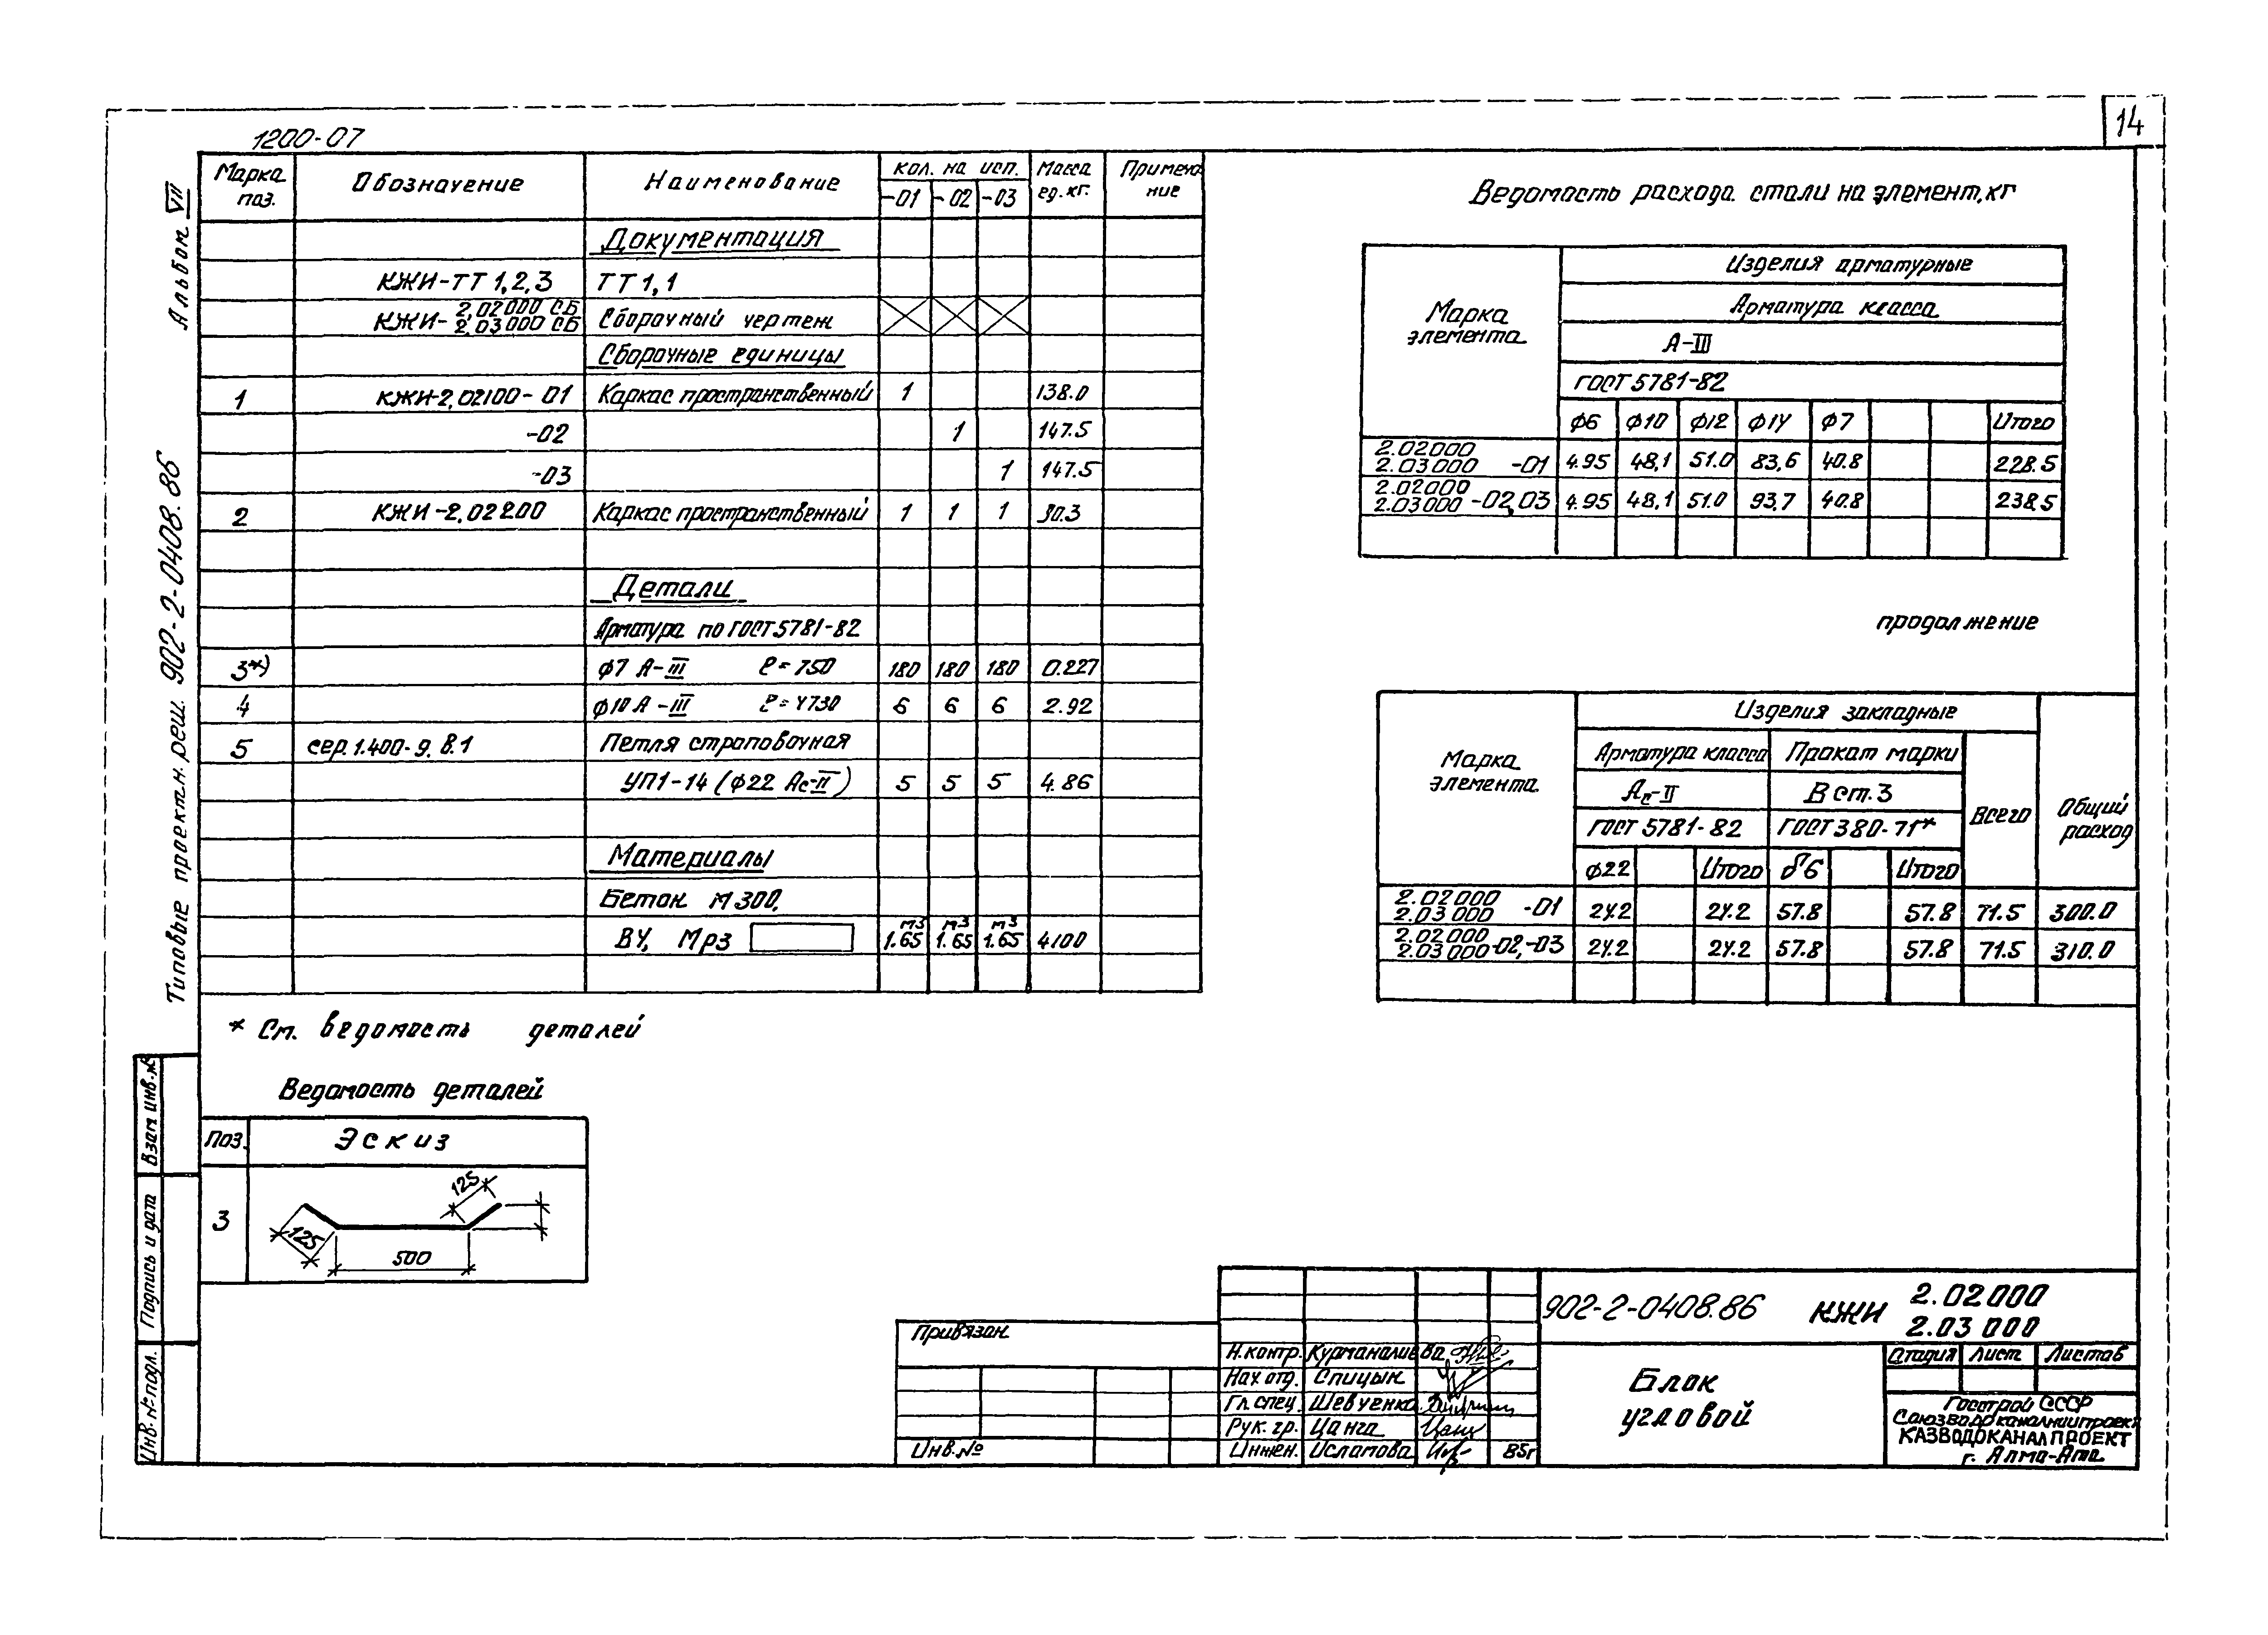 14
1200-07
Альбом VII
Типовые проектн. реш. 902-2-0408.86
Марка поз. Обозначение Наименование Кол. на исп. Масса ед. кг. Примечание
-01 -02 -03
Документация
КЖИ-ТТ 1,2,3 ТТ 1,1
КЖИ- 2.02000 СБ 2.03000 СБ Сборочный чертеж
Сборочные единицы
1 КЖИ-2.02100-01 Каркас пространственный 1 138.0
-02 1 147.5
-03 1 147.5
2 КЖИ-2.02200 Каркас пространственный 1 1 1 30.3
Детали
Арматура по ГОСТ 5781-82
3*) ф7 А-III ℓ=750 180 180 180 0.227
4 ф10 А-III ℓ=4730 6 6 6 2.92
5 сер. 1.400-9. В.1 Петля строповочная
УП1-14 (ф22 Ас-II) 5 5 5 4.86
Материалы
Бетон М300,
В4, Мрз м3 1.65 м3 1.65 м3 1.65 4100
* См. ведомость деталей
Ведомость деталей
Поз. Эскиз
3 125 125 500
Ведомость расхода стали на элемент, кг
Марка элемента Изделия арматурные
Арматура класса
А-III
ГОСТ 5781-82
ф6 ф10 ф12 ф14 ф7 Итого
2.02000 2.03000 -01 4.95 48,1 51.0 83,6 40.8 228.5
2.02000 2.03000 -02,03 4.95 48,1 51.0 93,7 40.8 238.5
продолжение
Марка элемента. Изделия закладные Общий расход
Арматура класса Прокат марки Всего
Ас-II В ст.3
ГОСТ 5781-82 ГОСТ 380-71*
ф22 Итого δ6 Итого
2.02000 2.03000 -01 24.2 24.2 57.8 57.8 71.5 300.0
2.02000 2.03000 -02,-03 24.2 24.2 57.8 57.8 71.5 310.0
Взам инв.№
Подпись и дата
Инв.№ подл.
Привязан
Инв.№
Н.контр. Курманалиева
Нач отд. Спицын
Гл.спец. Шевченко
Рук. гр. Цанга
Инжен. Исламова 85г
902-2-0408.86 КЖИ 2.02000 2.03 000
Блок угловой
Стадия Лист Листов
Госстрой СССР
Союзводоканалниипроект
КАЗВОДОКАНАЛПРОЕКТ
г. Алма-Ата